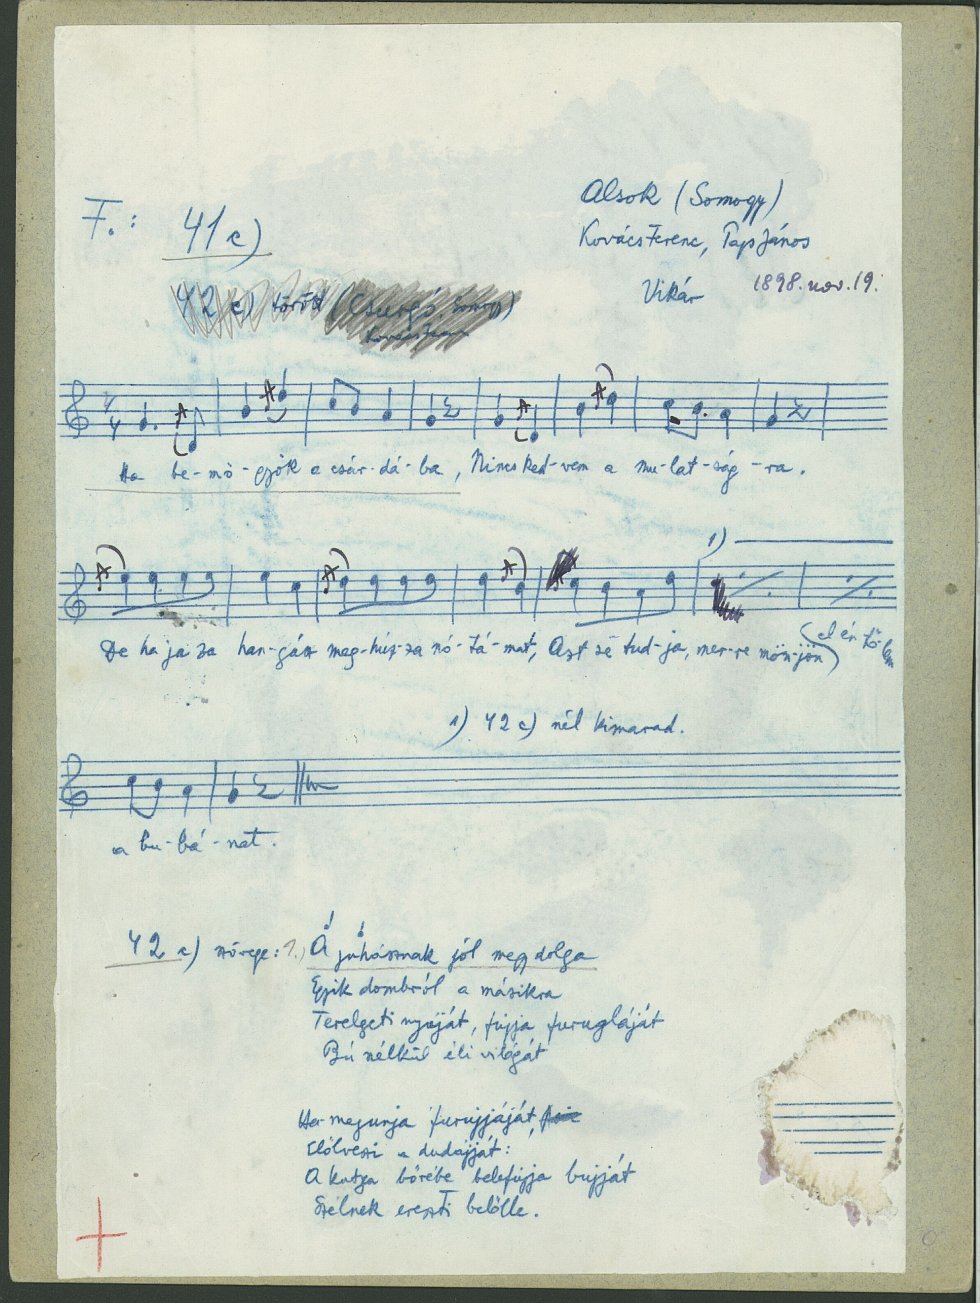 F.: 41c)
Alsok (Somogy)
Kovács Ferenc, Paps János
Vikár 1898. nov. 19.
42 c) török (Csurgó, Somogy)
Ha be-mö-gyök a csár-dá-ba, Nincs ked-vem a mu-lat-ság-ra.
1)
De ha ja za han-gász meg-húz-za nó-tá-mat, Azt sé tud-ja, mer-re mön-jön (el én tő-lem)
1) 42 c) nél kimarad.
a bu-bá-nat.
42 c) szövege: 1.) A juhásznak jól megy dolga
Egyik dombról a másikra
Terelgeti nyáját, fújja furugláját
Bú nélkül éli világát
Ha megunja furujjáját,
Elölveszi a dudájját:
A kutya bőrébe belefújja bújját
Szélnek ereszti belőlle.